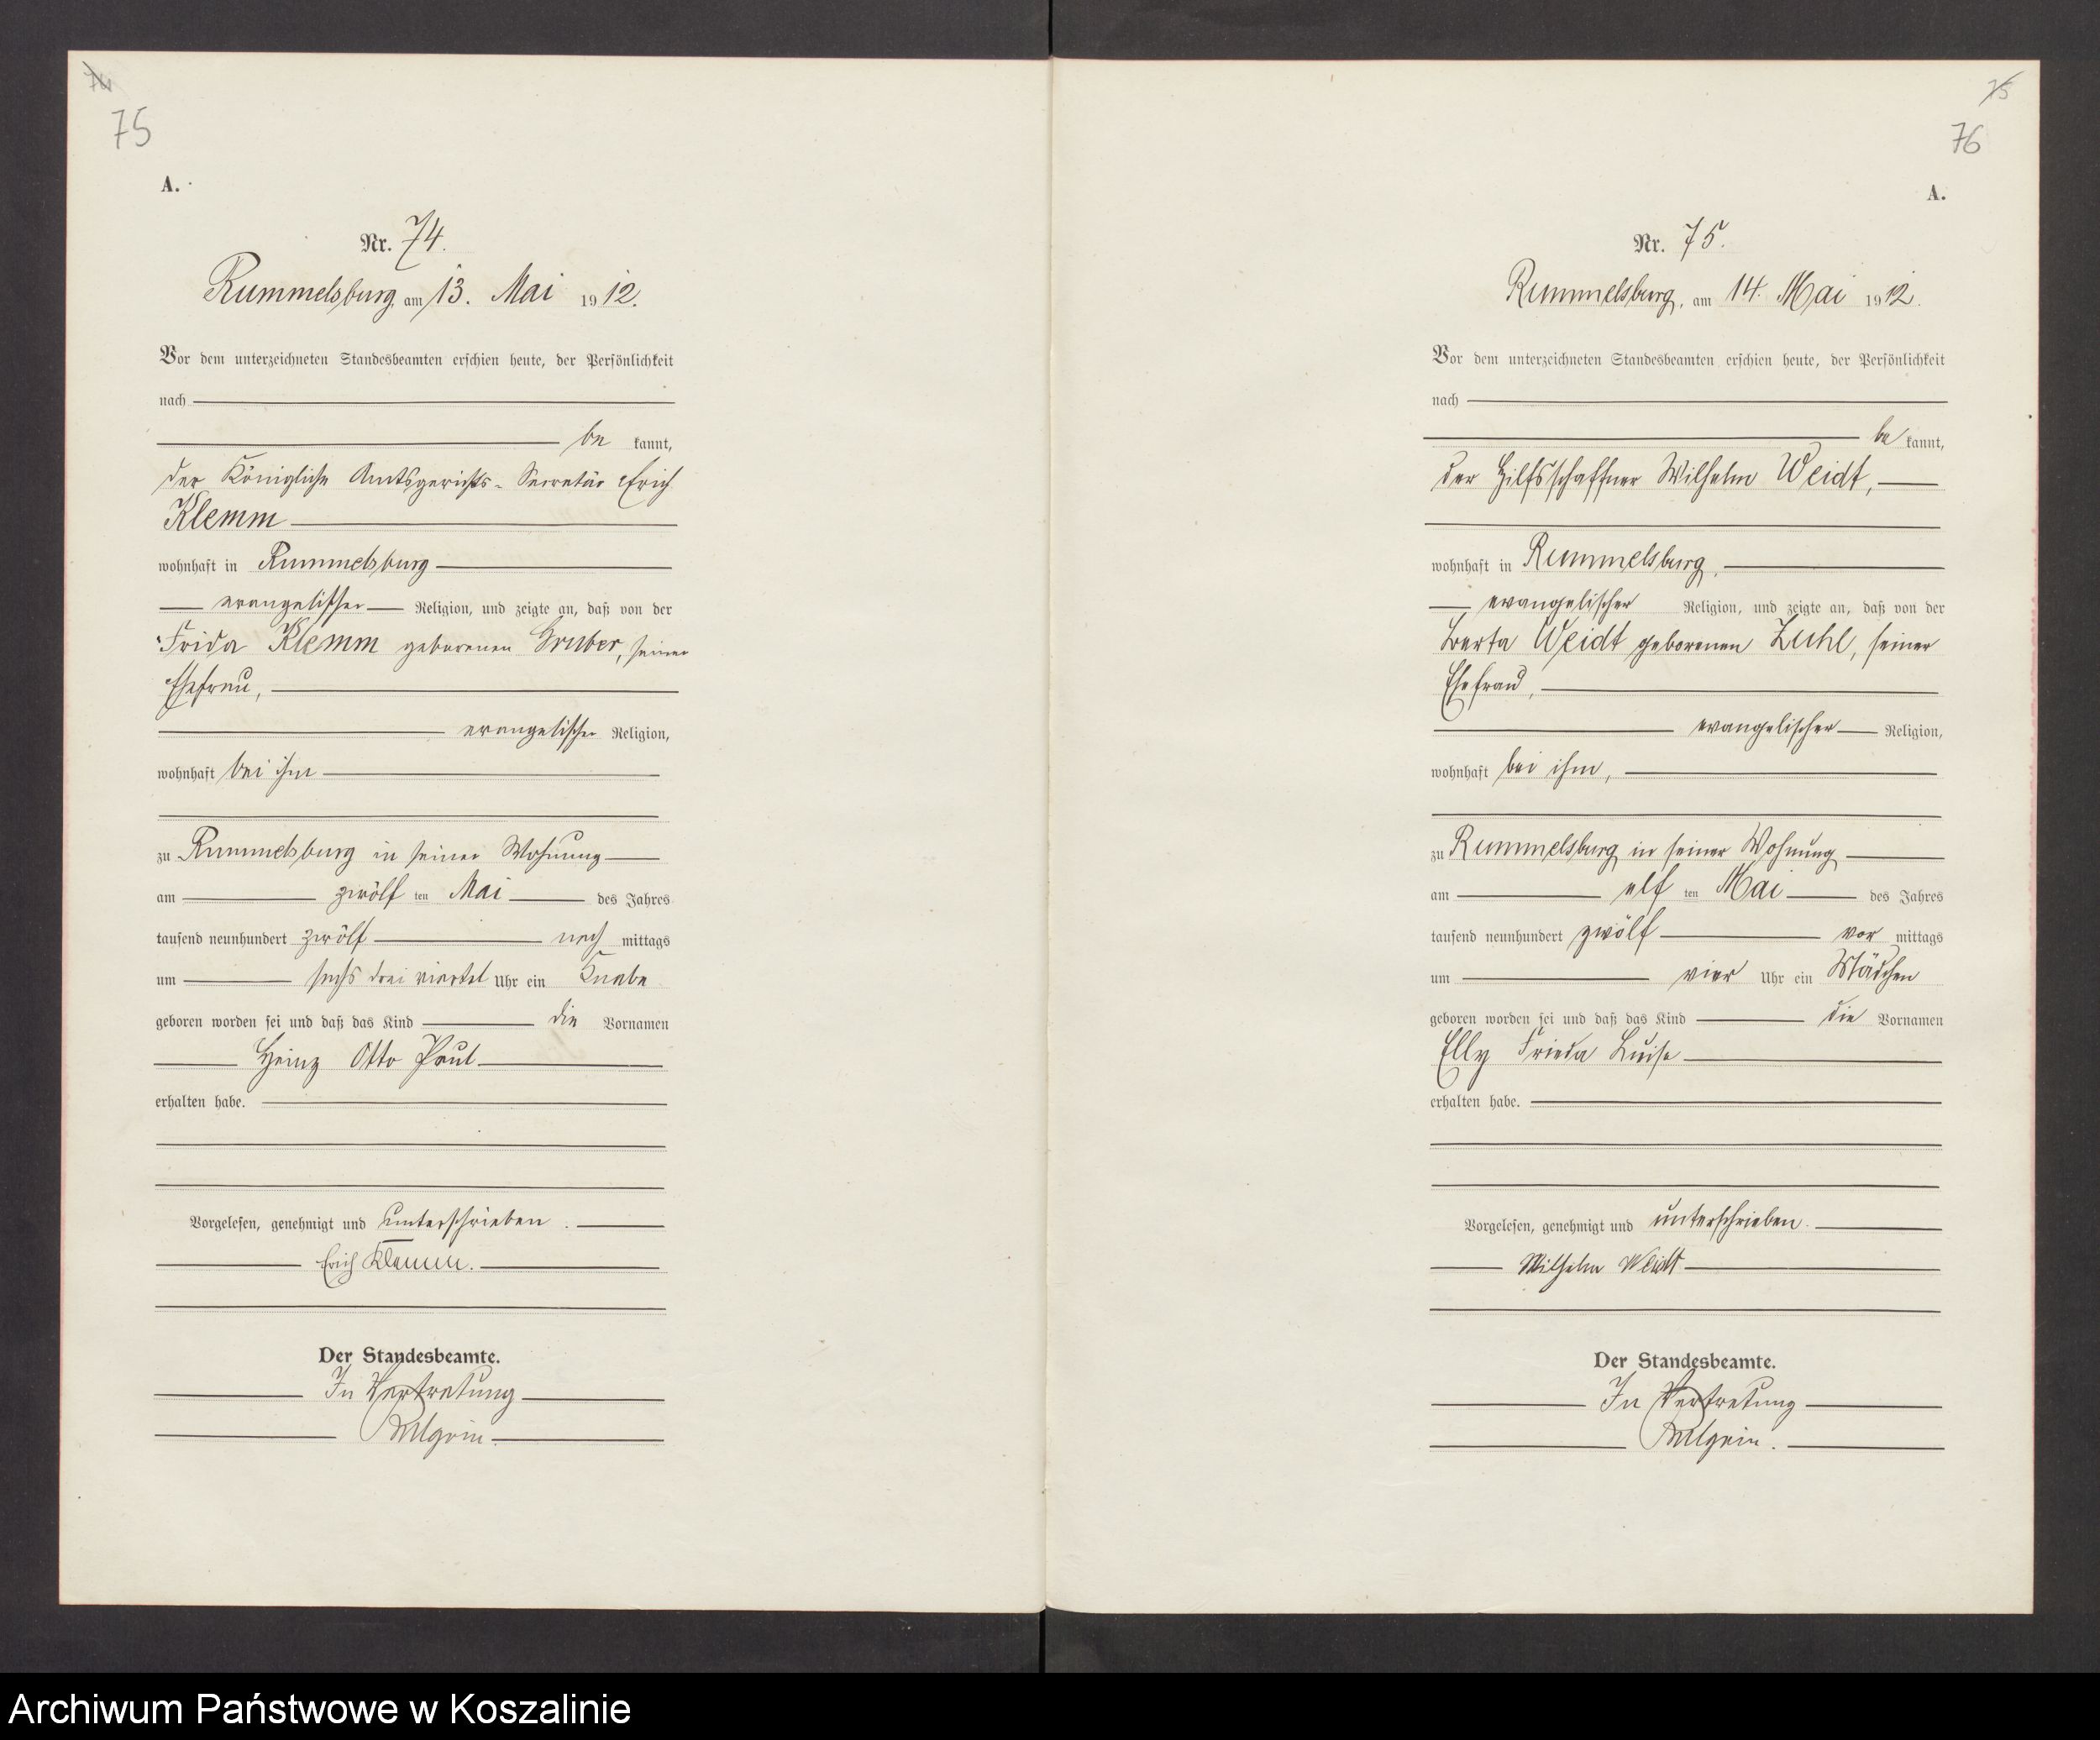 74
75
A.
Nr. 74.
Rummelsburg, am 13. Mai 1912.
Vor dem unterzeichneten Standesbeamten erschien heute, der Persönlichkeit
nach
be kannt,
der Königliche Amtsgerichts-Secretär Erich
Klemm
wohnhaft in Rummelsburg
evangelischer Religion, und zeigte an, daß von der
Frida Klemm geborenen Gruber, seiner
Ehefrau,
evangelischer Religion,
wohnhaft bei ihm
zu Rummelsburg in seiner Wohnung
am zwölf ten Mai des Jahres
tausend neunhundert zwölf nach mittags
um sechs drei viertel Uhr ein Knabe
geboren worden sei und daß das Kind die Vornamen
Heinz Otto Paul
erhalten habe.
Vorgelesen, genehmigt und unterschrieben.
Erich Klemm.
Der Standesbeamte.
In Vertretung
75
76
A.
Nr. 75.
Rummelsburg, am 14. Mai 1912.
Vor dem unterzeichneten Standesbeamten erschien heute, der Persönlichkeit
nach
be kannt,
der Hilfsschaffner Wilhelm Weidt,
wohnhaft in Rummelsburg,
evangelischer Religion, und zeigte an, daß von der
Berta Weidt geborenen Zuhl, seiner
Ehefrau,
evangelischer Religion,
wohnhaft bei ihm,
zu Rummelsburg in seiner Wohnung
am elf ten Mai des Jahres
tausend neunhundert zwölf vor mittags
um vier Uhr ein Mädchen
geboren worden sei und daß das Kind die Vornamen
Elly Frieda Luise
erhalten habe.
Vorgelesen, genehmigt und unterschrieben.
Wilhelm Weidt
Der Standesbeamte.
In Vertretung
Archiwum Państwowe w Koszalinie